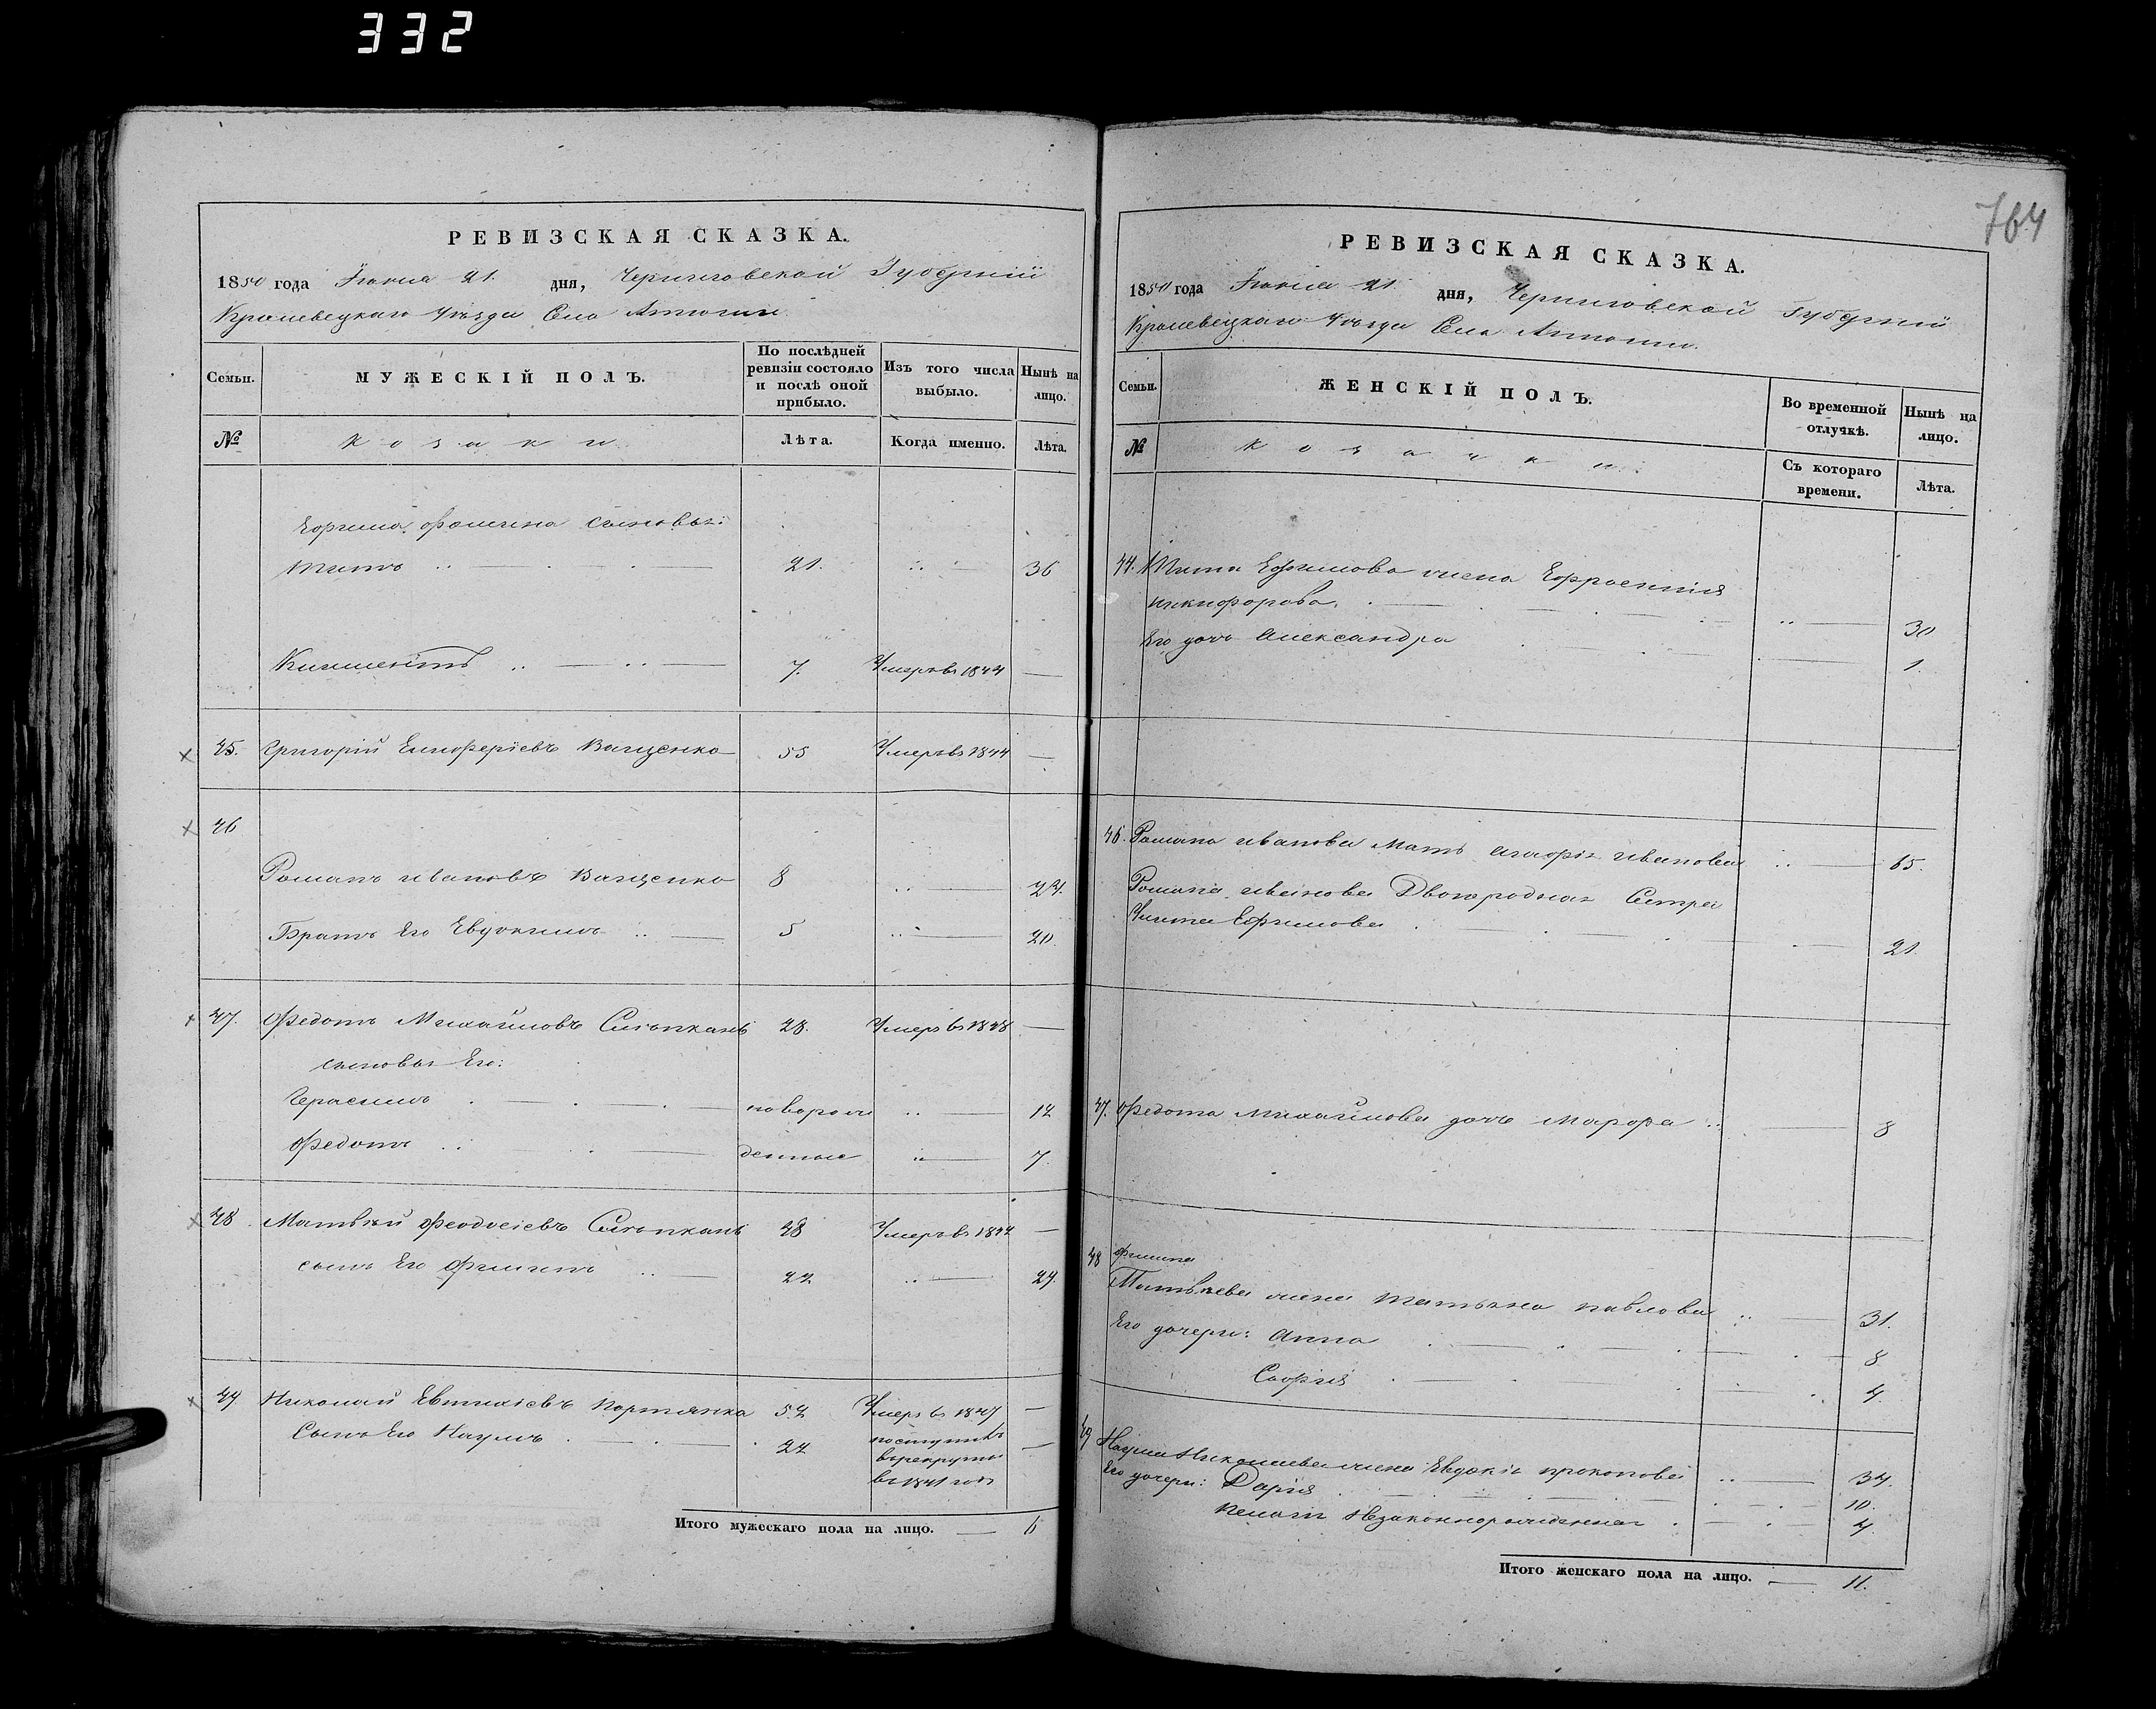 332
РЕВИЗСКАЯ СКАЗКА.
1850 года Іюня 21. дня, Черниговской Губерніи
Кролевецкаго Уѣзда Села
Семьи.
МУЖЕСКІЙ ПОЛЪ.
По послѣдней ревизіи состояло и послѣ оной прибыло.
Изъ того числа выбыло.
Нынѣ на лицо.
№
козаки
Лѣта.
Когда именно.
Лѣта.
сыновья:
Титъ 21. 36
Климентъ 7. Умеръ въ 1844 —
45. Григорій Елиоферіевъ Ващенко 55 Умеръ въ 1844 —
46
Романъ Ивановъ Ващенко 8
Братъ Его Евдокимъ 5 20.
47. Федотъ Михайловъ 28. Умеръ въ —
сыновья Его:
Герасимъ новорож 12
Федотъ денные 7.
48 Матвѣй Феодосіевъ Умеръ въ —
сынъ Его Филипъ 22
49 Николай Евтихіевъ Портянка 52 Умеръ въ 1847 —
Сынъ Его Наумъ 22 поступилъ
въ рекруты
въ 1841 годъ
Итого мужескаго пола на лицо. — 6
764
РЕВИЗСКАЯ СКАЗКА.
1850 года Іюня 21. дня, Черниговской Губерніи
Кролевецкаго Уѣзда Села
Семьи.
ЖЕНСКІЙ ПОЛЪ.
Во временной отлучкѣ.
Нынѣ на лицо.
№
козачки
Съ котораго времени.
Лѣта.
44. Тита Ефимова жена Ефросинія
Никифорова. 30
Его дочь Александра 1.
46. Романа Иванова Мать Ивановна 65.
Романа Иванова Двоюродная Сестра
Ефимова 21.
47. Федота Михайлова дочь Марфа 8
48 Филипа
Матвѣева жена Татьяна Павлова 31.
Его дочери: Анна 8
Софія 4.
49 Наума Николаева жена Евдокія Прокопова 34.
Его дочери: Дарія 10.
Незаконнорожденная 4.
Итого женскаго пола на лицо. — 11.